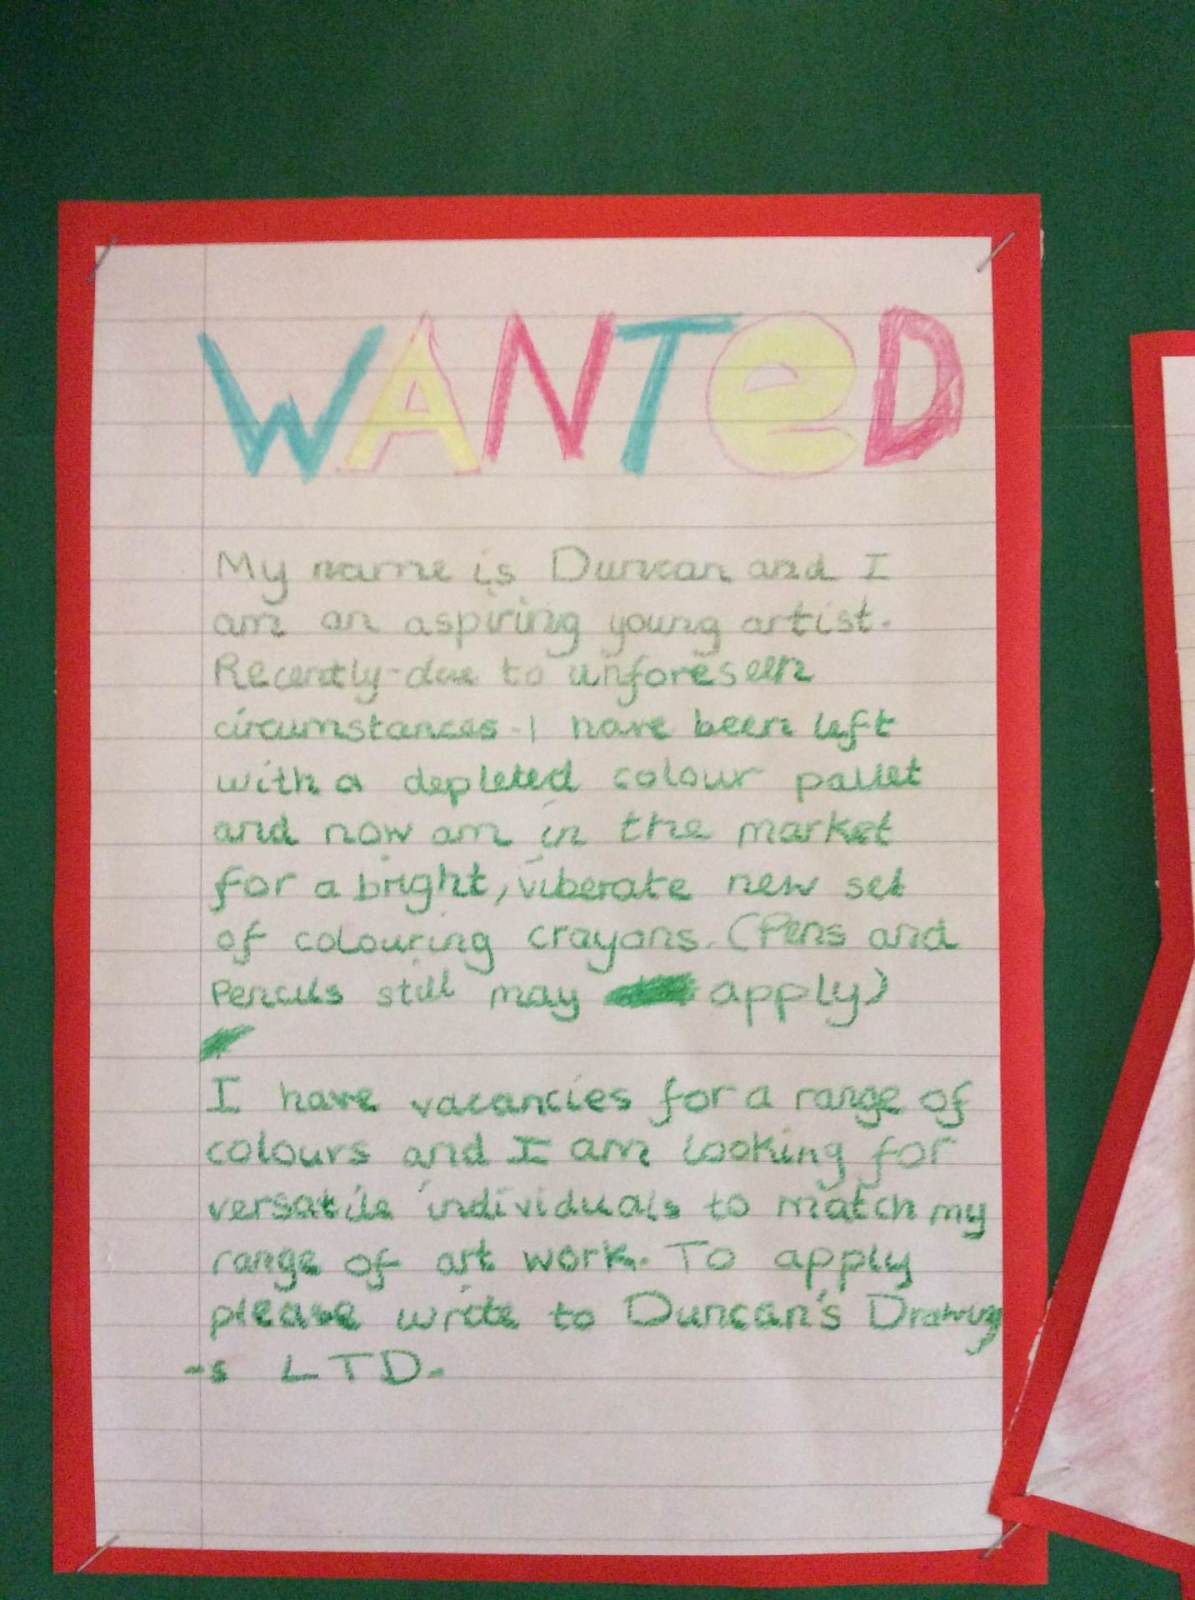 WANTeD
My name is Duncan and I
am an aspiring young artist.
Recently-due to unforeseen
circumstances-I have been left
with a depleted colour pallet
and now am in the market
for a bright, viberate new set
of colouring crayons. (Pens and
Pencils still may apply)
I have vacancies for a range of
colours and I am looking for
versatile individuals to match my
range of art work. To apply
please write to Duncan's Drawing
-s LTD.